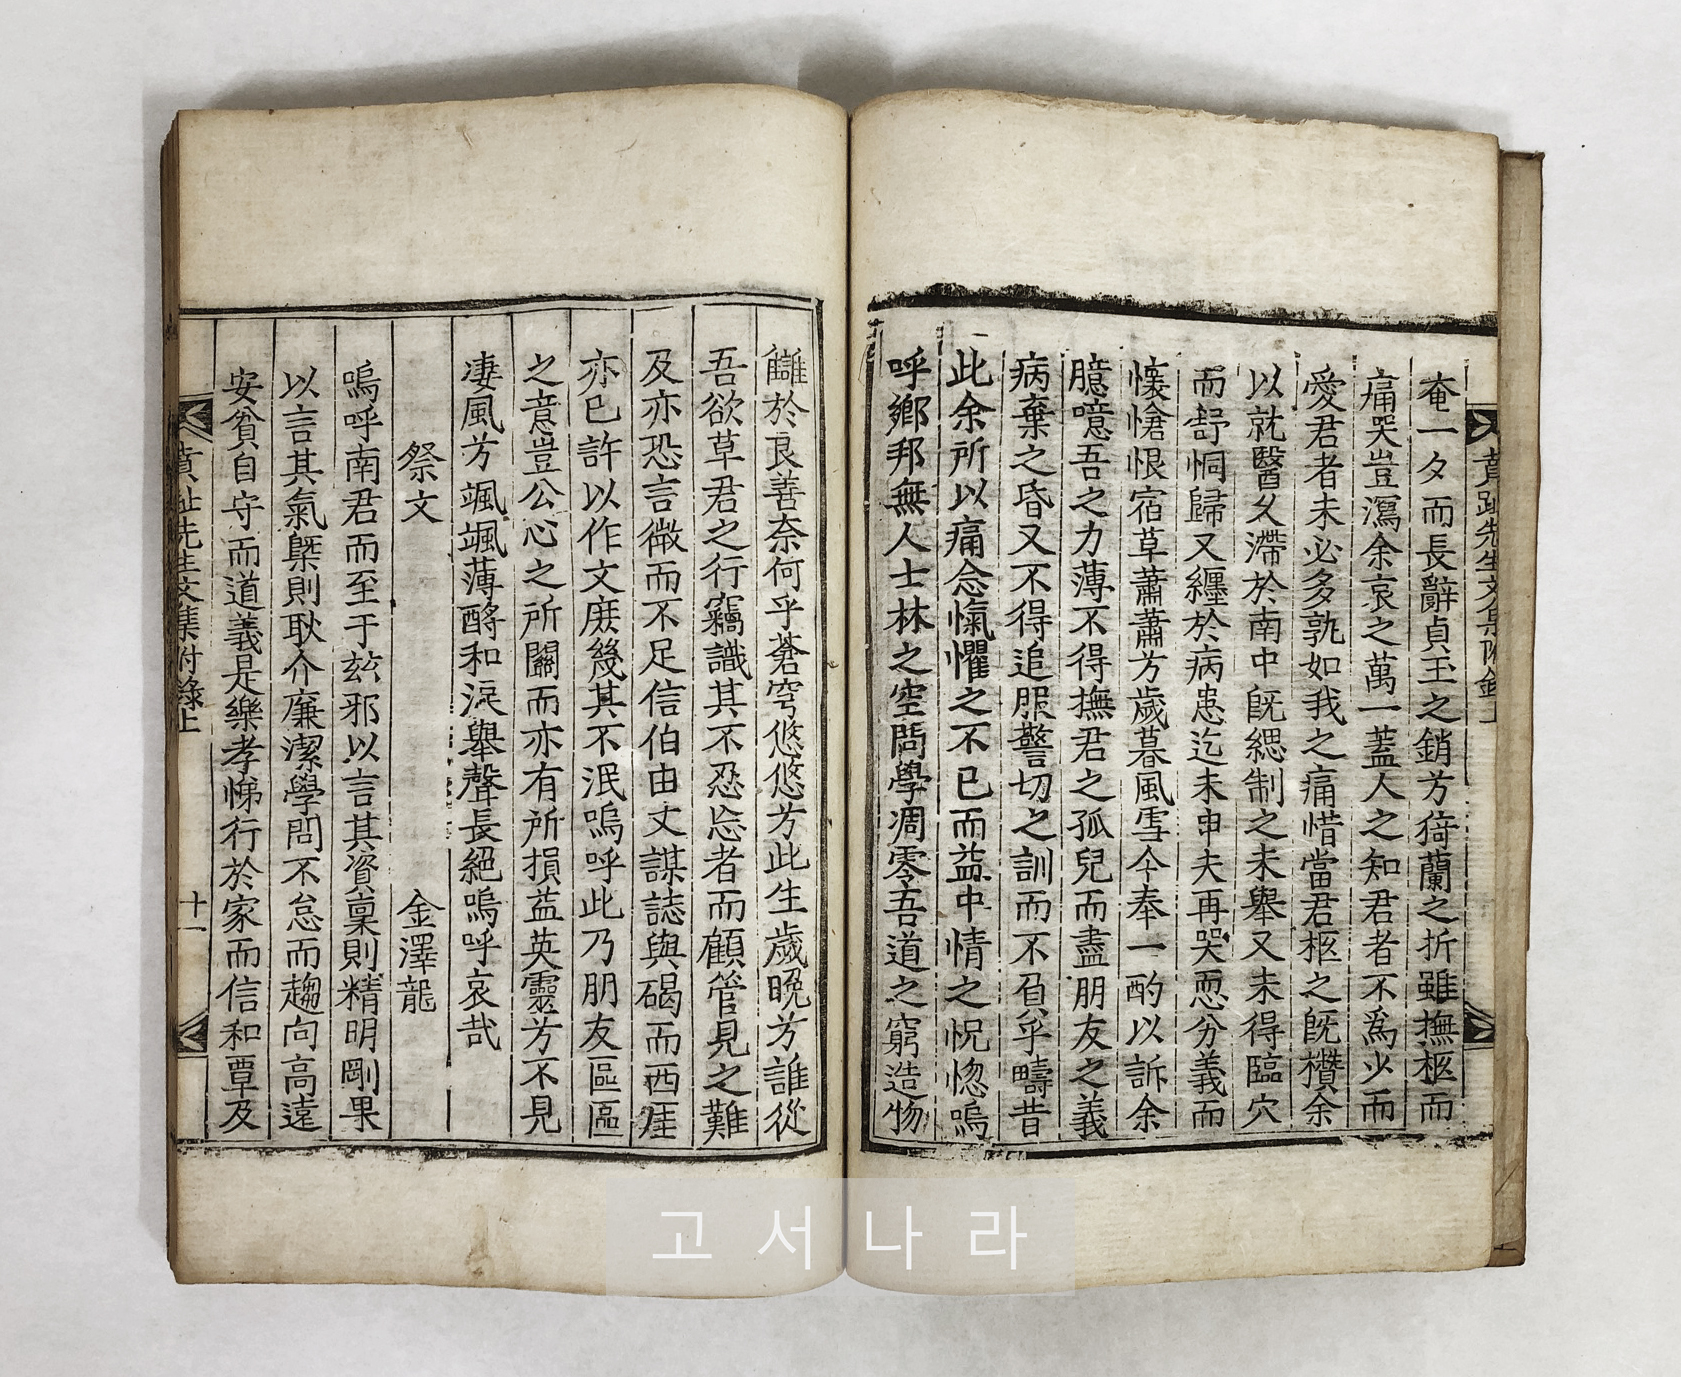 賁趾先生文集附錄上
奄一夕而長辭貞玉之銷芳猗蘭之折雖撫柩而
痛哭豈瀉余哀之萬一蓋人之知君者不爲少而
愛君者未必多孰如我之痛惜當君柩之旣櫕余
以就醫久滯於南中旣緦制之未擧又未得臨穴
而舒恫歸又纏於病患迄未申夫再哭恧分義而
懷愴恨宿草蕭蕭芳歲暮風雪今奉一酌以訴余
臆噫吾之力薄不得撫君之孤兒而盡朋友之義
病棄之昏又不得追服警切之訓而不負乎疇昔
此余所以痛念愾懼之不已而益中情之怳惚嗚
呼鄕邦無人士林之空問學凋零吾道之窮造物
讎於良善奈何乎蒼穹悠悠芳此生歲晩芳誰從
吾欲草君之行竊識其不忍忘者而顧管見之難
及亦恐言微而不足信伯由丈謀誌與碣而西厓
亦已許以作文庶幾其不泯嗚呼此乃朋友區區
之意豈公心之所關而亦有所損益英靈芳不見
凄風芳颯颯薄酹和淚擧聲長絕嗚呼哀哉
祭文 金澤龍
嗚呼南君而至于玆邪以言其資稟則精明剛果
以言其氣槩則耿介廉潔學問不怠而趨向高遠
安貧自守而道義是樂孝悌行於家而信和覃及
賁趾先生文集附錄上 十一
고서나라